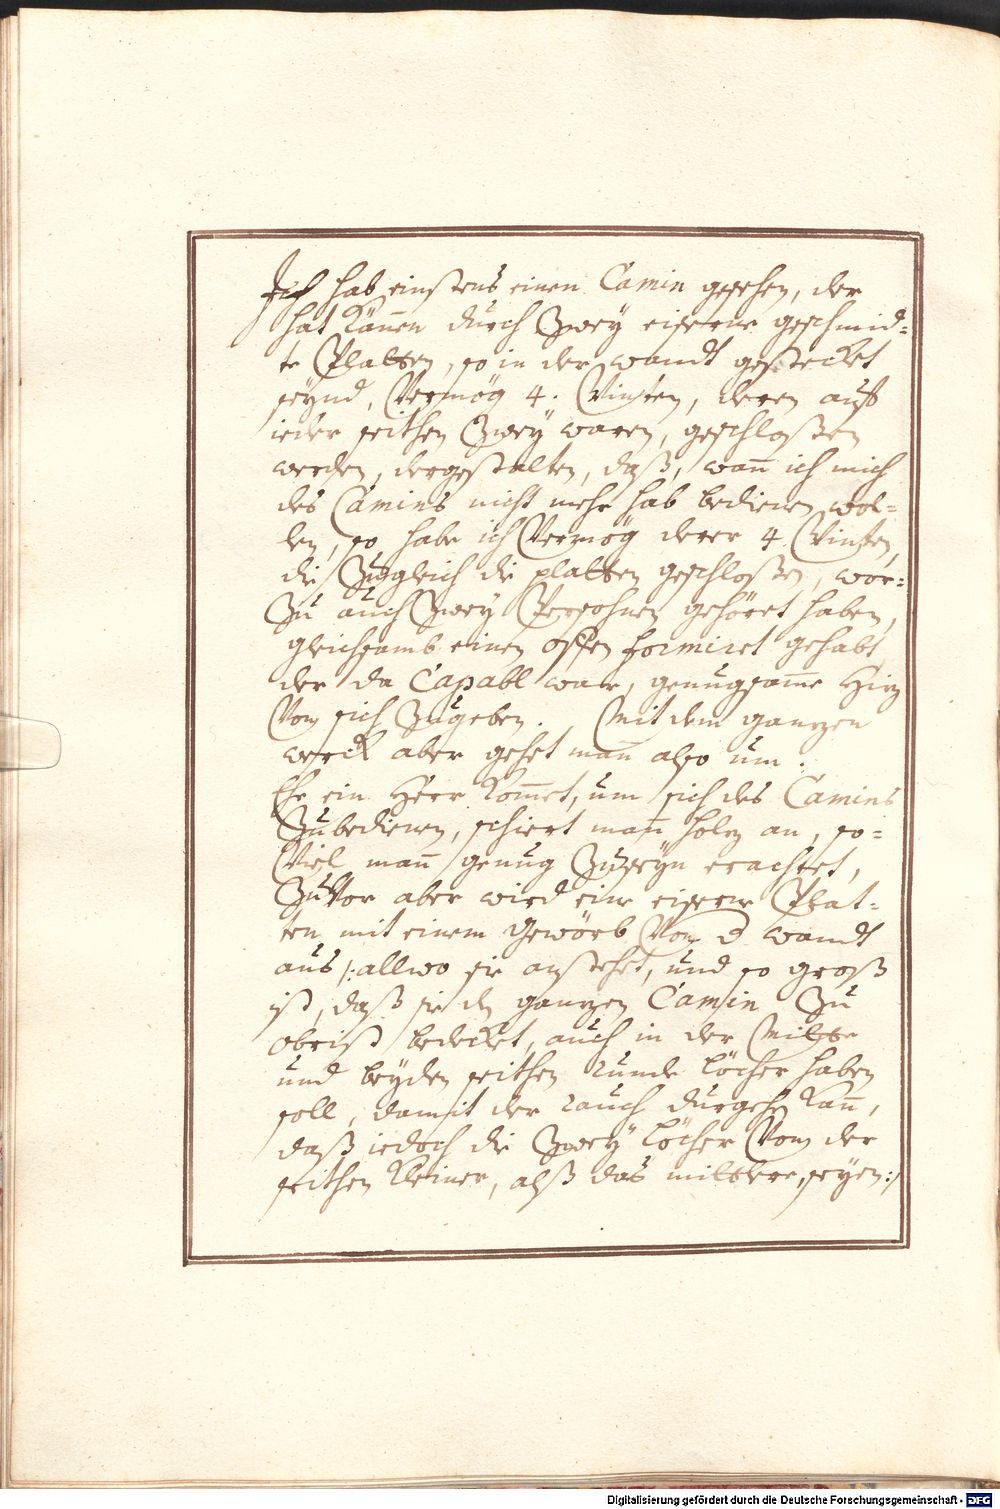 Ich hab einstens einen Camin gesehen, der
hat können durch Zwey eiserne geschmid=
te Platten, so in der wandt gestecket
seynd, Vermög 4. Winten, deren auff
ieder seithen Zwey waren, geschlossen
werden, dergestalten, daß, wan̄ ich mich
des Camins nicht mehr hab bedienen wol=
len, so habe ich Vermög derer 4 Winten,
die Zugleich die platten geschlossen, wor=
Zu auch Zwey Persohnen gehöret haben,
gleichsamb einen offen formiret gehabt,
der da Capabl ware, genugsam̄e Hiz
Von sich Zugeben. Mit dem ganzen
werck aber gehet man̄ also um:
Ehe ein Herr kom̄et, um sich des Camins
Zubedienen, schiert man̄ holz an, so=
Viel man̄ genug Zuseyn erachtet,
ZuVor aber wird eine eiserne Plat=
ten mit einem gewörb Von d wandt
aus /: allwo sie anstehet, und so groß
ist, daß sie dn ganzen Camin Zu
obrist bedecket, auch in der Mitte
und beyden seithen runde löcher haben
soll, damit der rauch durgehn kan̄,
daß iedoch die Zwey löcher Von der
seithen kleiner, alß das mittere, seyen :/
Digitalisierung gefördert durch die Deutsche Forschungsgemeinschaft - DFG